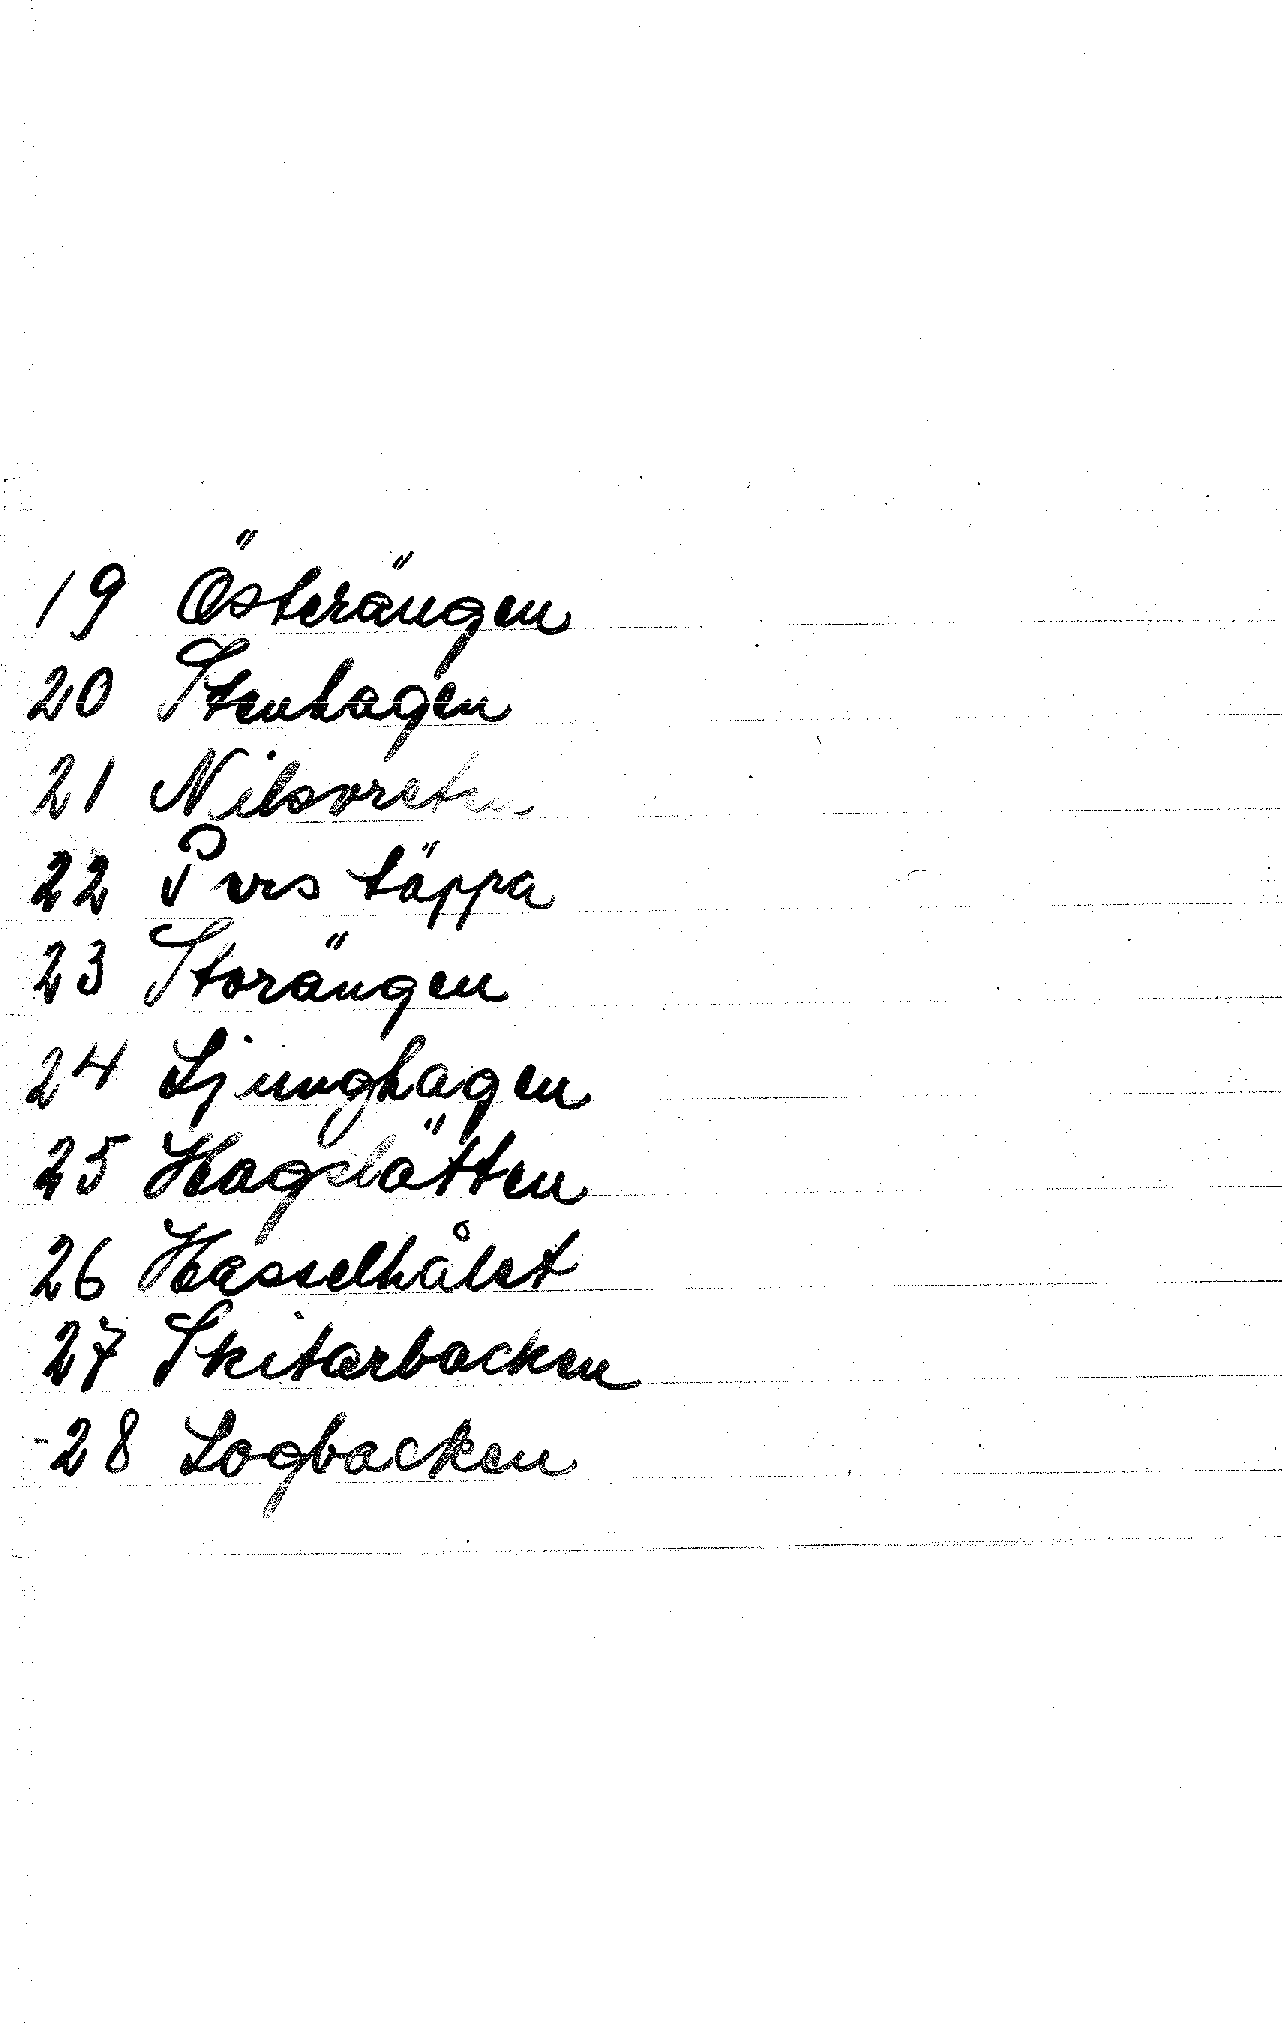 19 Österängen
20 Stenhagen
21 Nilsvreten
22 Pers täppa
23 Storängen
24 Ljunghagen
25 Hagslätten
26 Hasselhålet
27 Skitarbacken
28 Logbacken